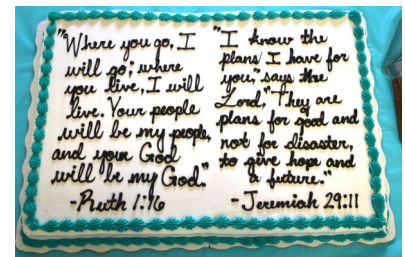 "Where you go, I
will go; where
you live, I will
live. Your people
will be my people,
and your God
will be my God."
-Ruth 1:16
"I know the
plans I have for
you," says the
Lord, "They are
plans for good and
not for disaster,
to give hope and
a future."
-Jeremiah 29:11